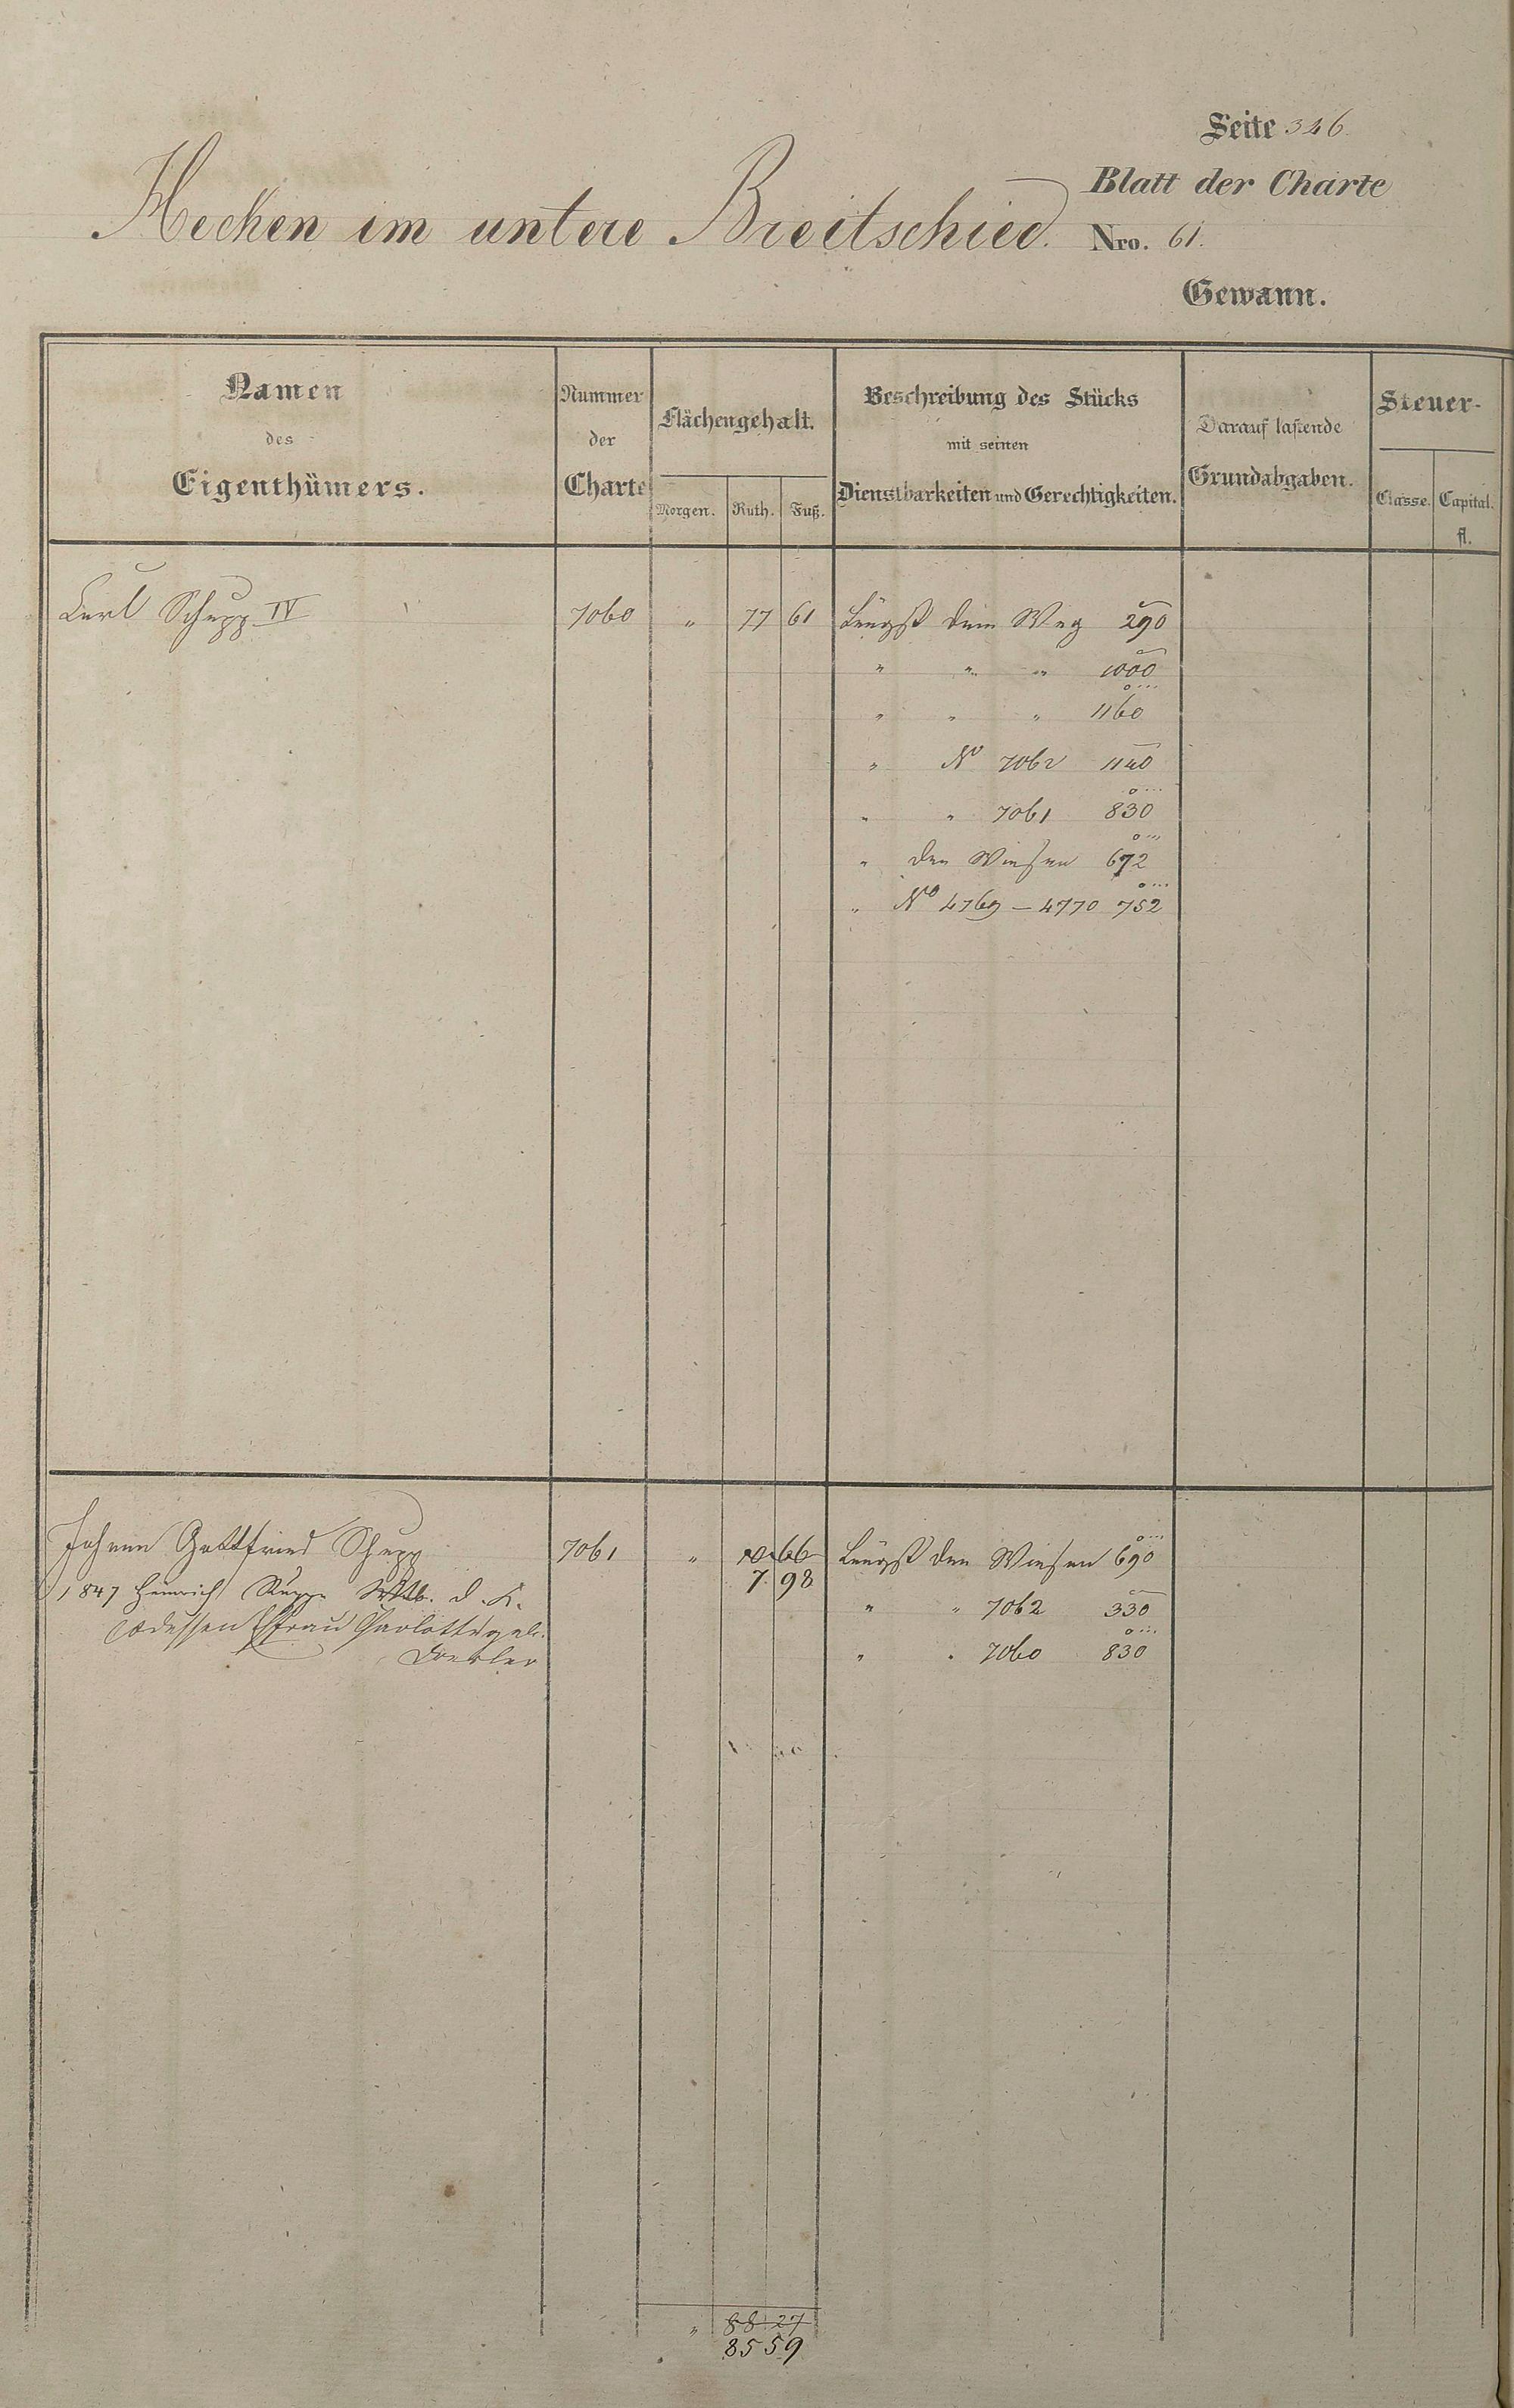 Seite 346.
Blatt der Charte
Hecken im untere Breitschied. Nro. 61.
Gewann.
Namen des Eigenthümers.
Nummer der Charte
Flächengehalt.
Morgen. Ruth. Fuß.
Beschreibung des Stücks mit seinen Dienstbarkeiten und Gerechtigkeiten.
Darauf lastende Grundabgaben.
Steuer-
Classe. Capital.
fl.
Carl Schupp IV 7060 " 77 61 Längst dem Weg 290
" " " 1000
" " " 1160
" No 7062 1140
" " 7061 830
" den Wiesen 672
" No 4769 – 4770 752
Johann Gottfried Schupp 7061 " 10 66 Längst den Wiesen 690
7. 98
1847 Heinrich Wttb. d. K.
" " 7062 330
Ehfrau geb.
" " 7060 830
" 88 27
85 59